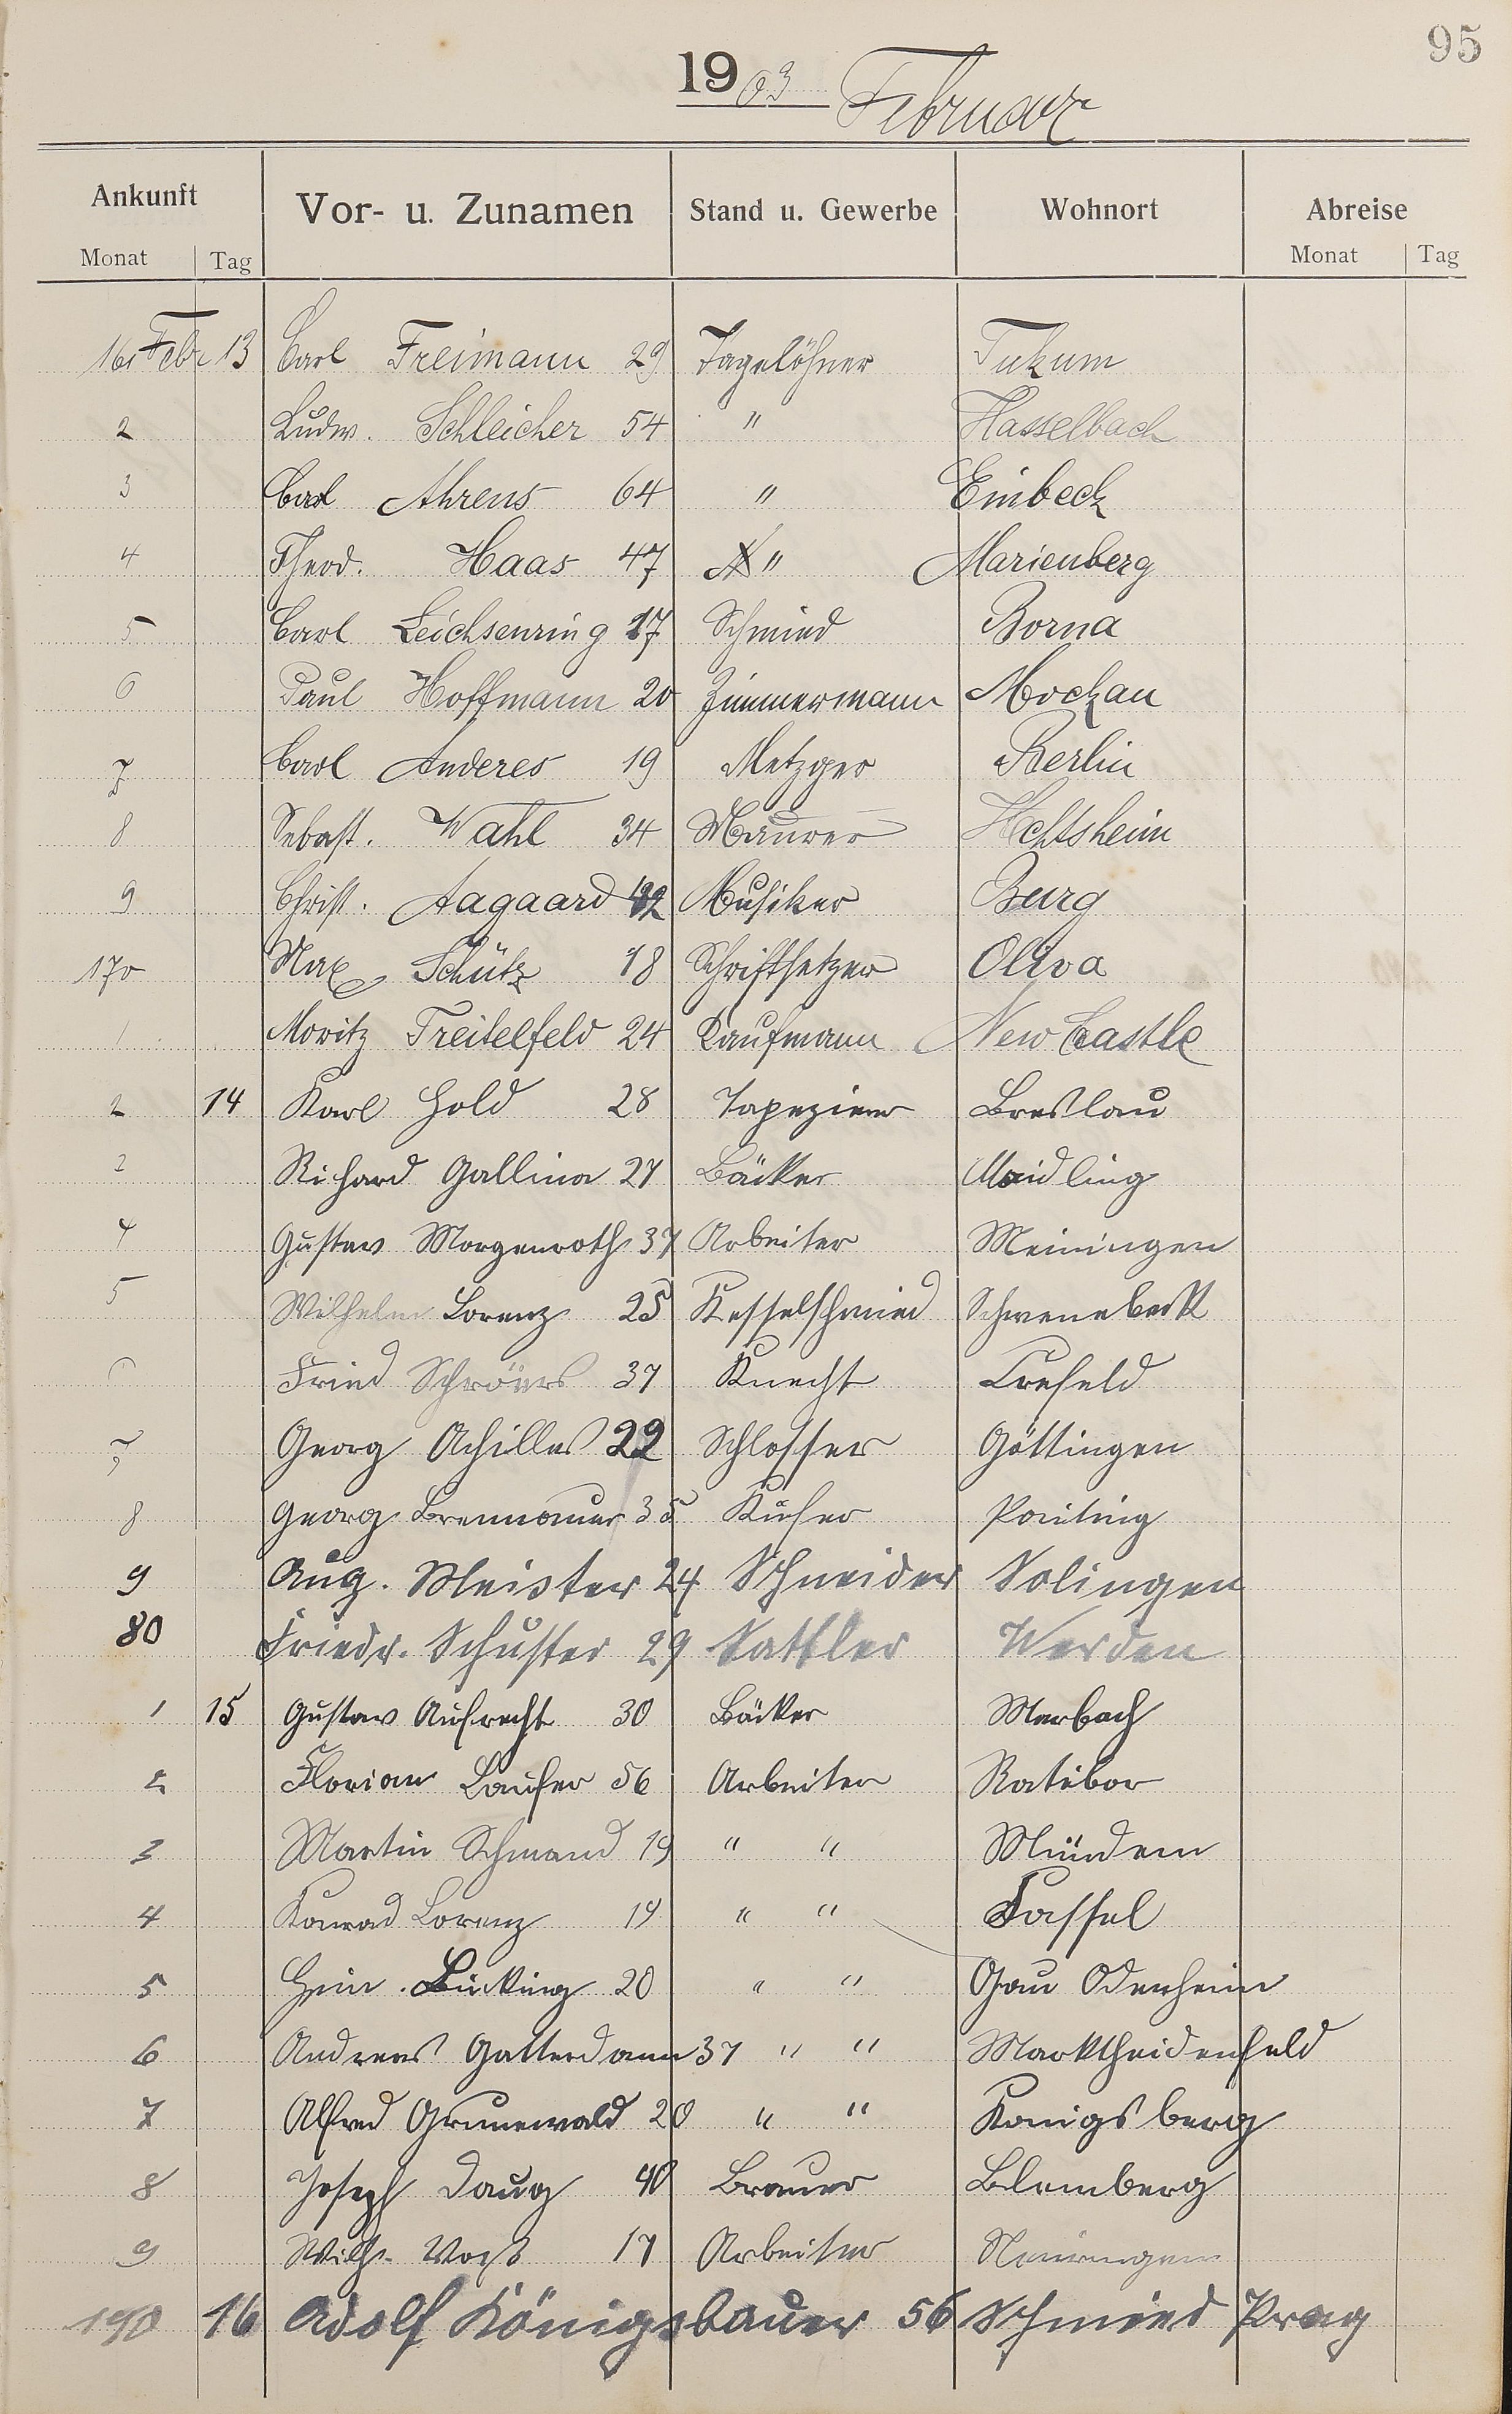 95
1903 Februar
Ankunft Vor- u. Zunamen Stand u. Gewerbe Wohnort Abreise
Monat Tag Monat Tag
161 Febr 13 Carl Freimann 29 Tagelöhner Tukum
2 Ludw. Schleicher 54 " Hasselbach
3 Carl Ahrens 64 " Einbeck
4 Theod. Haas 47 " Marienberg
5 Carl Leichsenring 17 Schmied Borna
6 Paul Hoffmann 20 Zimmermann Mockau
7 Carl Anderes 19 Metzger Berlin
8 Sebast. Wahl 34 Maurer Hechtsheim
9 Christ. Aagaard Musiker Burg
170 Max Schütz 18 Schriftsetzer Oliva
1 Moritz Treitelfeld 24 Kaufmann New Castle
2 14 Karl Hold 28 Tapezierer Breslau
2 Richard Gallina 27 Bäcker Meidling
4 Gustav Morgenroth 37 Arbeiter Meiningen
5 Wilhelm Lorenz 25 Kesselschmied
6 Fried Schröers 37 Knecht Crefeld
7 Georg Achilles 22 Schlosser Göttingen
8 Georg Brennauer 35 Küfer Pointing
9 Aug. Meister 24 Schneider Solingen
80 Friedr. Schuster 29 Sattler Werden
1 15 Gustav Aufrecht 30 Bäcker Marbach
2 Florian Laufer 56 Arbeiter Ratibor
3 Martin Schmand 19 " " Mündem
4 Konrad Lorenz 19 " " Cassel
5 Hein. Bücking 20 " " Gau Odenheim
6 Andreas Gatterdam 37 " " Marktheidenfeld
7 Alfred Grunewald 20 " " Konigsberg
8 Joseph Daug 40 Brauer Blemberg
9 Wilh. Voß 17 Arbeiter
190 16 Adolf Königsbauer 56 Schmied Prag